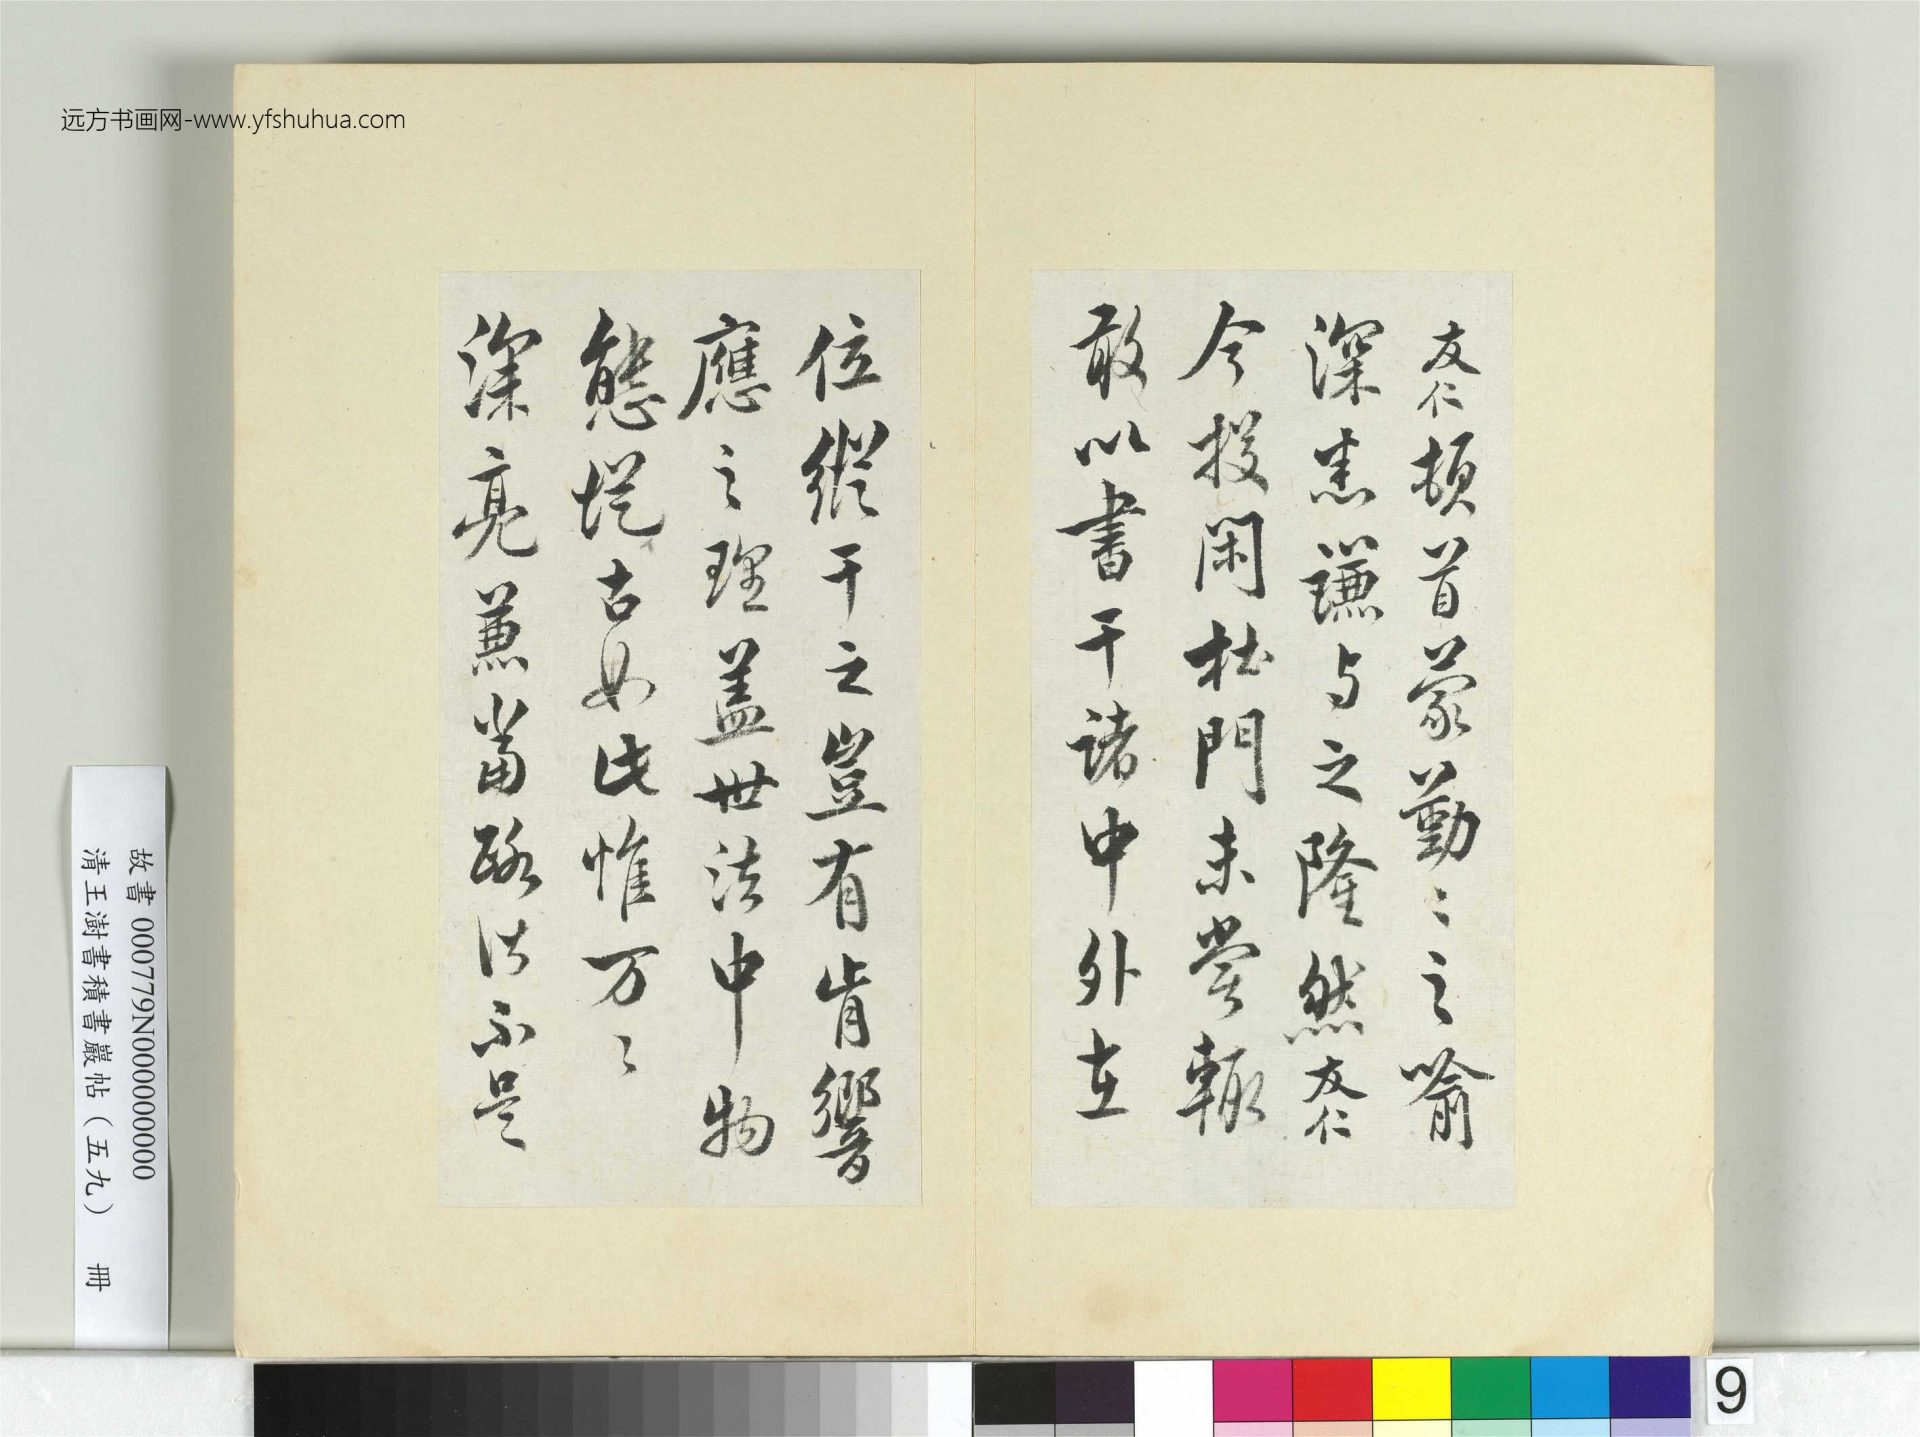 远方书画网-www.yfshuhua.com
友仁頓首蒙勤〻之喻
深悉謙与之隆然友仁
今投閑杜門未嘗輙
敢以書干諸中外在
位縱干之豈有肯響
應之理盖世法中物
態從古如此惟万〻
深亮兼當路法不是
故書 000779N000000000
清王澍書積書巖帖（五九） 冊
9